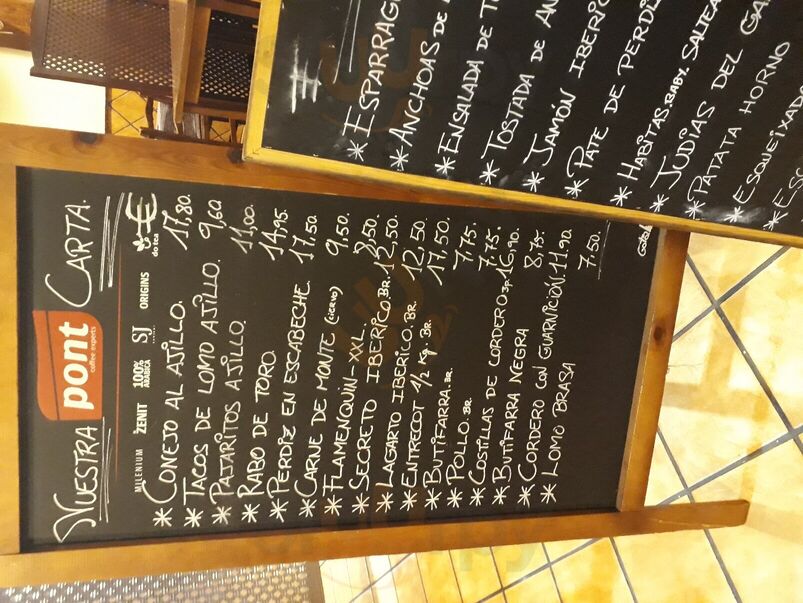 NUESTRA pont CARTA.
coffee experts
MILENIUM ŽENIT 100% ARABICA SJ ORIGINS do toa €
* CONEJO AL AJILLO. 17,80.
* TACOS DE LOMO AJILLO. 9,60
* PAJARITOS AJILLO. 11,00.
* RABO DE TORO. 14,95.
* PERDIZ EN ESCABECHE. 17,50.
* CARNE DE MONTE (CIERVO) 9,50.
* FLAMENQUIN-XXL. 8,50.
* SECRETO IBERICO.BR. 12,50.
* LAGARTO IBERICO. BR. 12,50.
* ENTRECOT 1/2 Kg. BR. 17,50.
* BUTIFARRA.BR. 7,75.
* POLLO.BR. 7,75.
* COSTILLAS DE CORDERO.JP 16,90.
* BUTIFARRA NEGRA 8,75.
* CORDERO CON GUARNICIÓN 11.90.
* LOMO BRASA 7.50.
* ESPARRAG
* ANCHOAS DE
* ENSALADA DE T
* TOSTADA DE AN
* JAMÓN IBERIC
* PATE DE PERDIZ
* HABITAS.BABY. SALTEA
* JUDIAS DEL GA
* PATATA HORNO
* ESQUEIXADA
* ESC